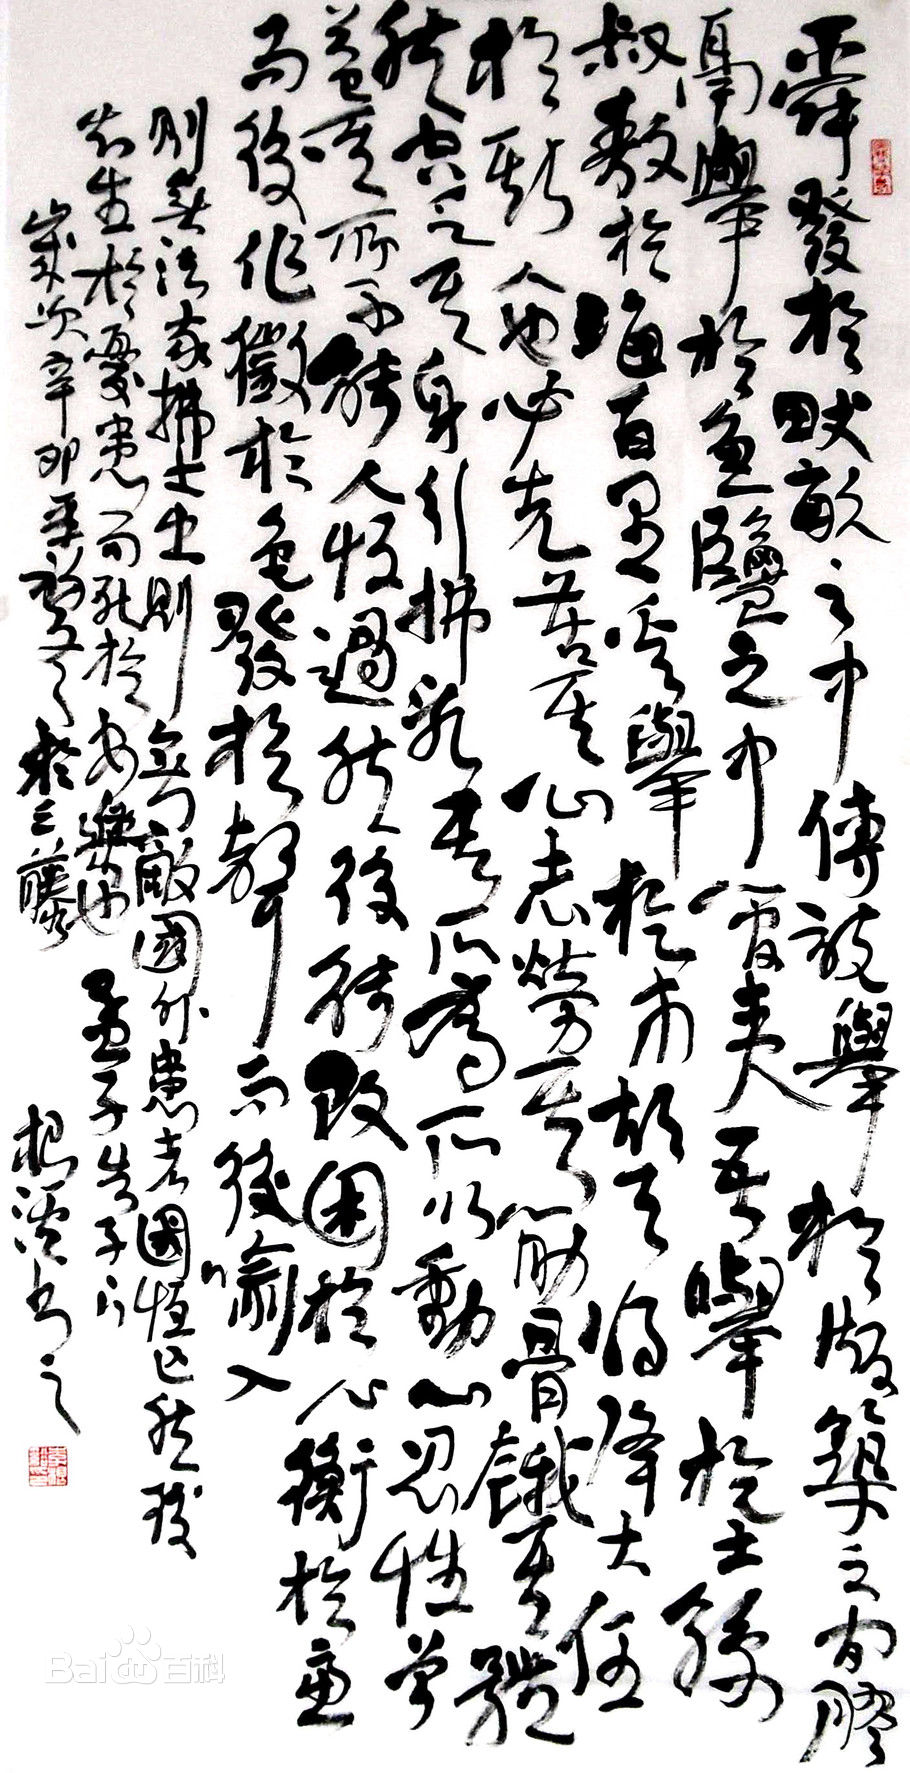 舜發於畎畝之中傅說舉於版築之間膠
鬲舉於魚鹽之中管夷吾舉於士孫
叔敖於海百里奚舉於市故天將降大任
於斯人也必先苦其心志勞其筋骨餓其體
空乏其身行拂亂其所為所以動心忍性曾
益其所不能人恒過然後能改困於心衡於慮
而後作徵於色發於聲而後喻入
則無法家拂士出則無敵國外患者國恒亡然後
知生於憂患而死於安樂也 孟子告子下
歲次辛卯年初冬於 書之
Bai百科